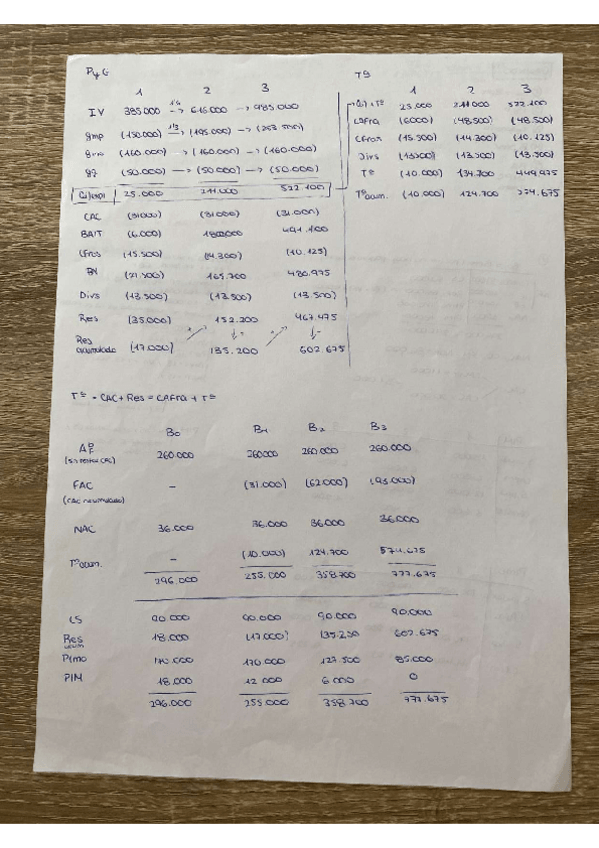 PyG
1 2 3
IV 385.000 1'6 → 616.000 → 985.000
gmp (150.000) 1'3 → (195.000) → (253.500)
(160.000) → (160.000) → (160.000)
(50.000) → (50.000) → (50.000)
25.000 211.000 522.100
CAC (31.000) (31.000) (31.000)
BAIT (6.000) 180.000 491.100
Cfros (15.500) (14.300) (10.125)
BN (21.500) 165.700 480.975
Divs (13.500) (13.500) (13.500)
Res (35.000) 152.200 467.475
Res acumulado (17.000) 135.200 602.675
Tª
1 2 3
25.000 211.000 522.100
CAfra (6000) (48.500) (48.500)
Cfros (15.500) (14.300) (10.125)
Divs (13.500) (13.500) (13.500)
Tª (10.000) 134.700 449.975
Tª acum. (10.000) 124.700 574.675
Tª - CAC + Res = CAFra + Tª
B0 B1 B2 B3
260.000 260.000 260.000 260.000
FAC - (31.000) (62.000) (93.000)
(CAC acumulado)
NAC 36.000 36.000 36.000 36.000
Tª acum. - (10.000) 124.700 574.675
296.000 255.000 358.700 777.675
CS 90.000 90.000 90.000 90.000
Res acum 18.000 (17.000) 135.200 602.675
Plmo 170.000 170.000 127.500 85.000
PIM 18.000 12.000 6.000 0
296.000 255.000 358.700 777.675